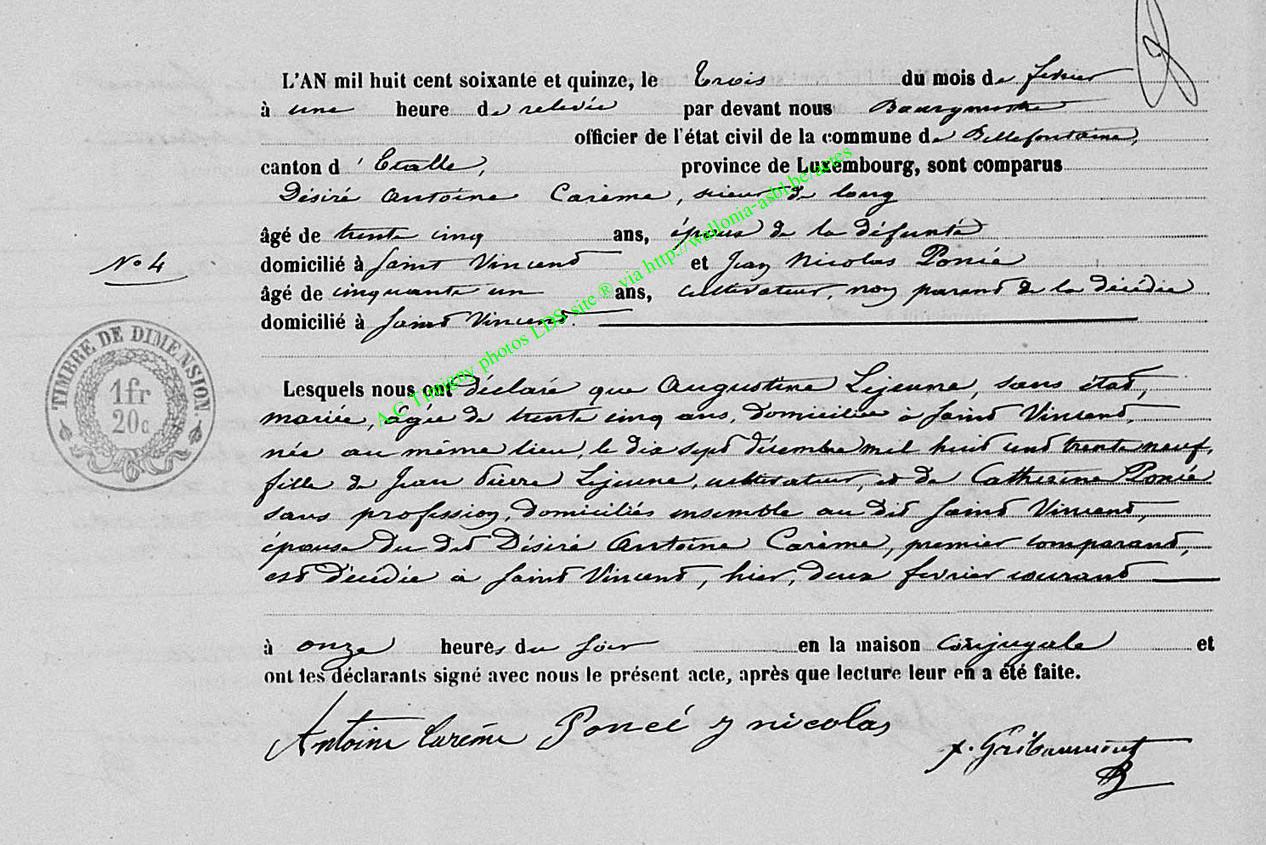 L'AN mil huit cent soixante et quinze, le Trois du mois de février
à une heure de relevée par devant nous Bourgmestre
officier de l'état civil de la commune de Bellefontaine,
canton d' Etalle, province de Luxembourg, sont comparus
Désiré Antoine Carême, scieur de long
âgé de trente cinq ans, époux de la défunte
N° 4 domicilié à Saint Vincent et Jean Nicolas Poncé
âgé de cinquante un ans, cultivateur, non parent de la décédée
domicilié à Saint Vincent.
TIMBRE DE DIMENSION.
1fr
20c
Lesquels nous ont déclaré que Augustine Lejeune, sans état,
mariée, âgée de trente cinq ans, domiciliée à Saint Vincent,
née au même lieu, le dix sept décembre mil huit cent trente neuf,
fille de Jean Pierre Lejeune, cultivateur, et de Catherine Poncé
sans profession, domiciliés ensemble au dit Saint Vincent,
épouse du dit Désiré Antoine Carême, premier comparant,
est décédée à Saint Vincent, hier, deux février courant
à onze heures du soir en la maison conjugale et
ont les déclarants signé avec nous le présent acte, après que lecture leur en a été faite.
Antoine Carême Poncé J nicolas
Gribaumont
A.G. photos LDS site ® via http://wallonia-asbl.be/actes